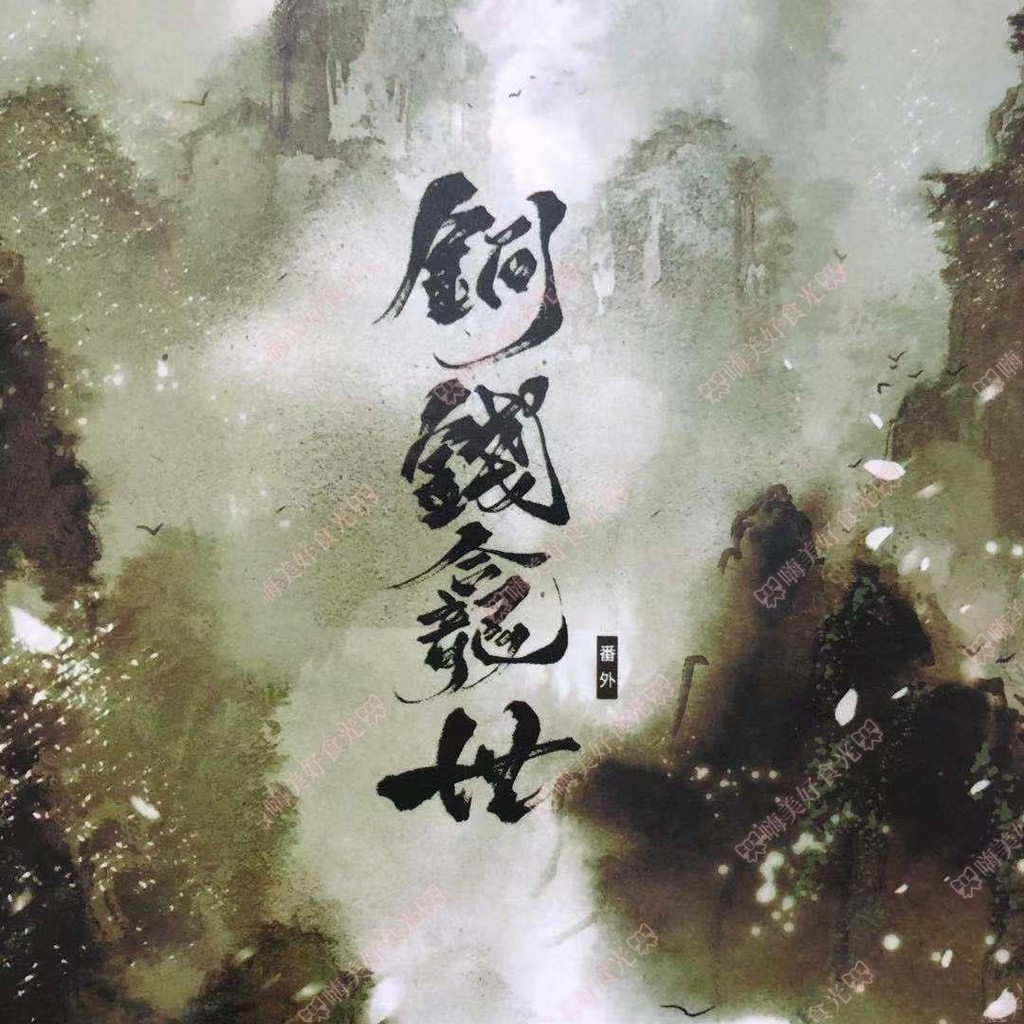 銅錢龕世
番外
嗨美好食光
嗨美好食光
嗨美好食光
嗨美好食光
嗨美好食光
嗨美好食光
嗨美好食光